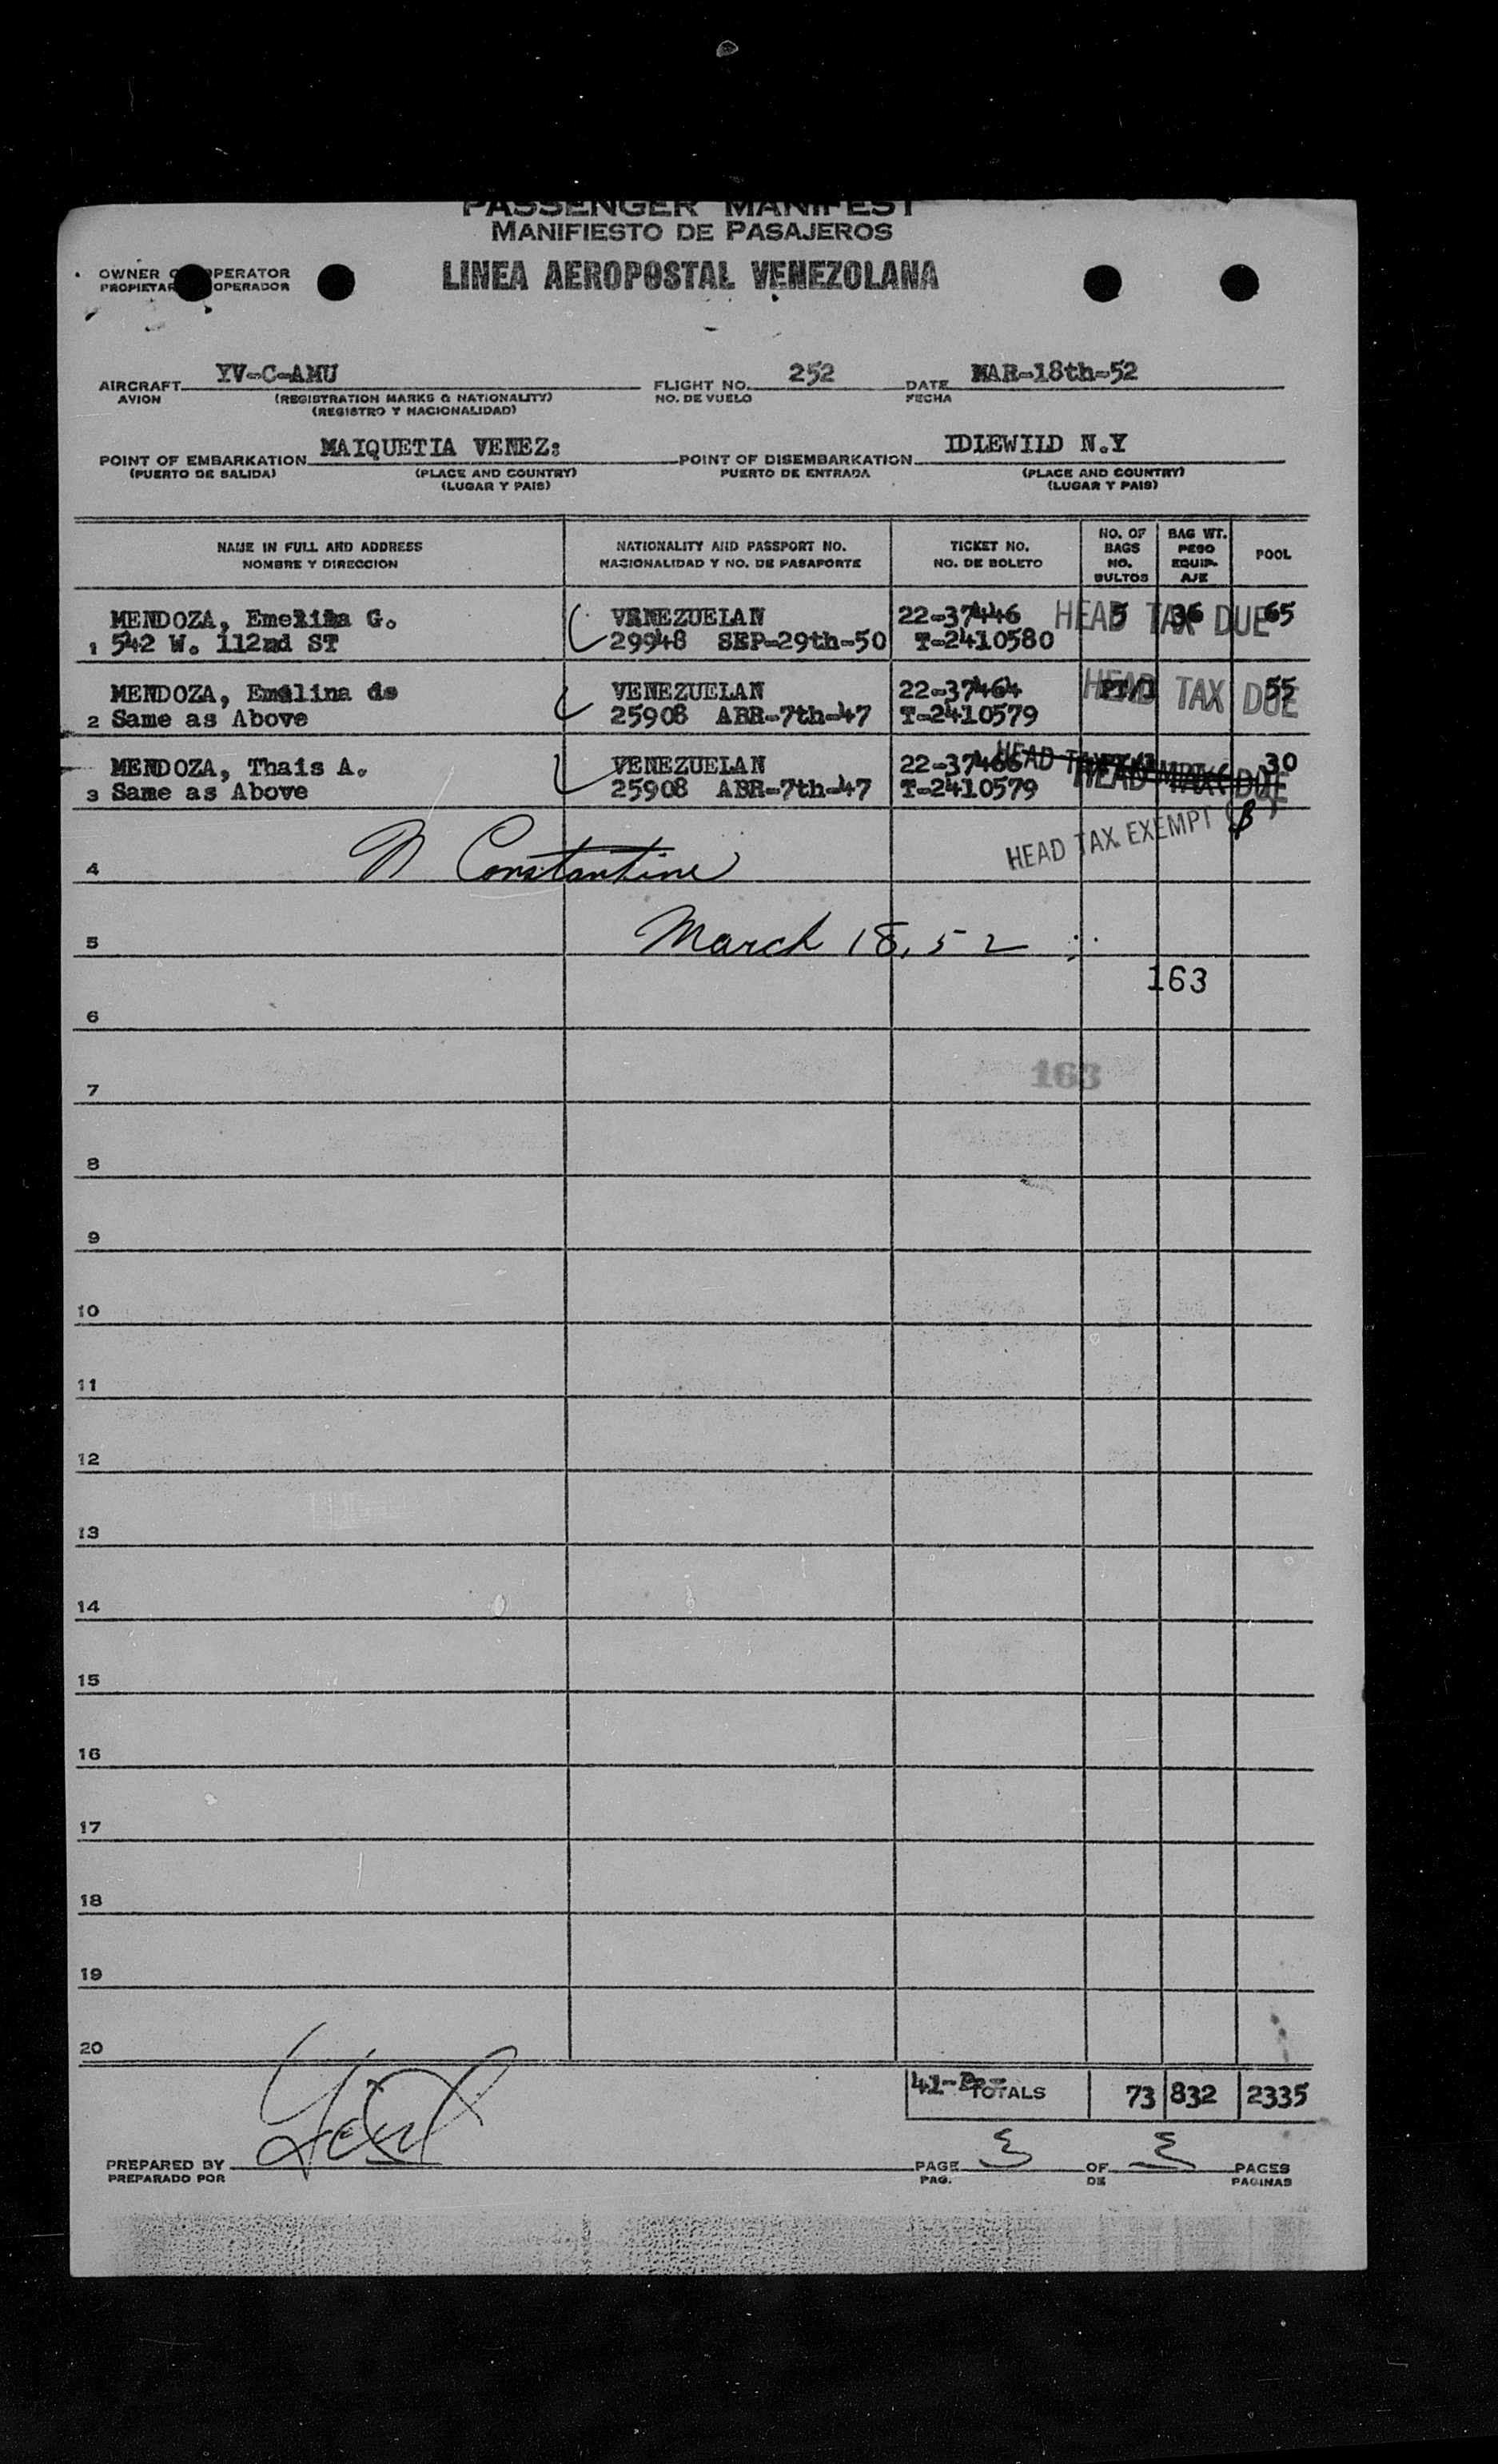 PASSENGER MANIFEST
MANIFIESTO DE PASAJEROS
OWNER OPERATOR
OPERADOR
LINEA AEROPOSTAL VENEZOLANA
AIRCRAFT YV-C-AMU FLIGHT NO. 252 DATE MAR-18th-52
AVION (REGISTRATION MARKS & NATIONALITY) NO. DE VUELO FECHA
(REGISTRO Y NACIONALIDAD)
POINT OF EMBARKATION MAIQUETIA VENEZ: POINT OF DISEMBARKATION IDLEWILD N.Y
(PUERTO DE SALIDA) (PLACE AND COUNTRY) PUERTO DE ENTRADA (PLACE AND COUNTRY)
(LUGAR Y PAIS) (LUGAR Y PAIS)
NAME IN FULL AND ADDRESS NATIONALITY AND PASSPORT NO. TICKET NO. NO. OF BAGS BAG WT. POOL
NOMBRE Y DIRECCION NACIONALIDAD Y NO. DE PASAPORTE NO. DE BOLETO NO. BULTOS PESO EQUIP-AJE
MENDOZA, Emelina G. VENEZUELAN 22-37446 5 36 65 HEAD TAX DUE
1 542 W. 112nd ST 29948 SEP-29th-50 T-2410580
MENDOZA, Emelina de VENEZUELAN 22-37464 55 HEAD TAX DUE
2 Same as Above 25908 ABR-7th-47 T-2410579
MENDOZA, Thais A. VENEZUELAN 22-37466 30 HEAD TAX
3 Same as Above 25908 ABR-7th-47 T-2410579 HEAD TAX DUE
HEAD TAX EXEMPT
4 N Constantine
5 March 18, 52
163
6
163
7
8
9
10
11
12
13
14
15
16
17
18
19
20
TOTALS 73 832 2335
PREPARED BY PAGE 3 OF 3 PAGES
PREPARADO POR PAG. DE PAGINAS